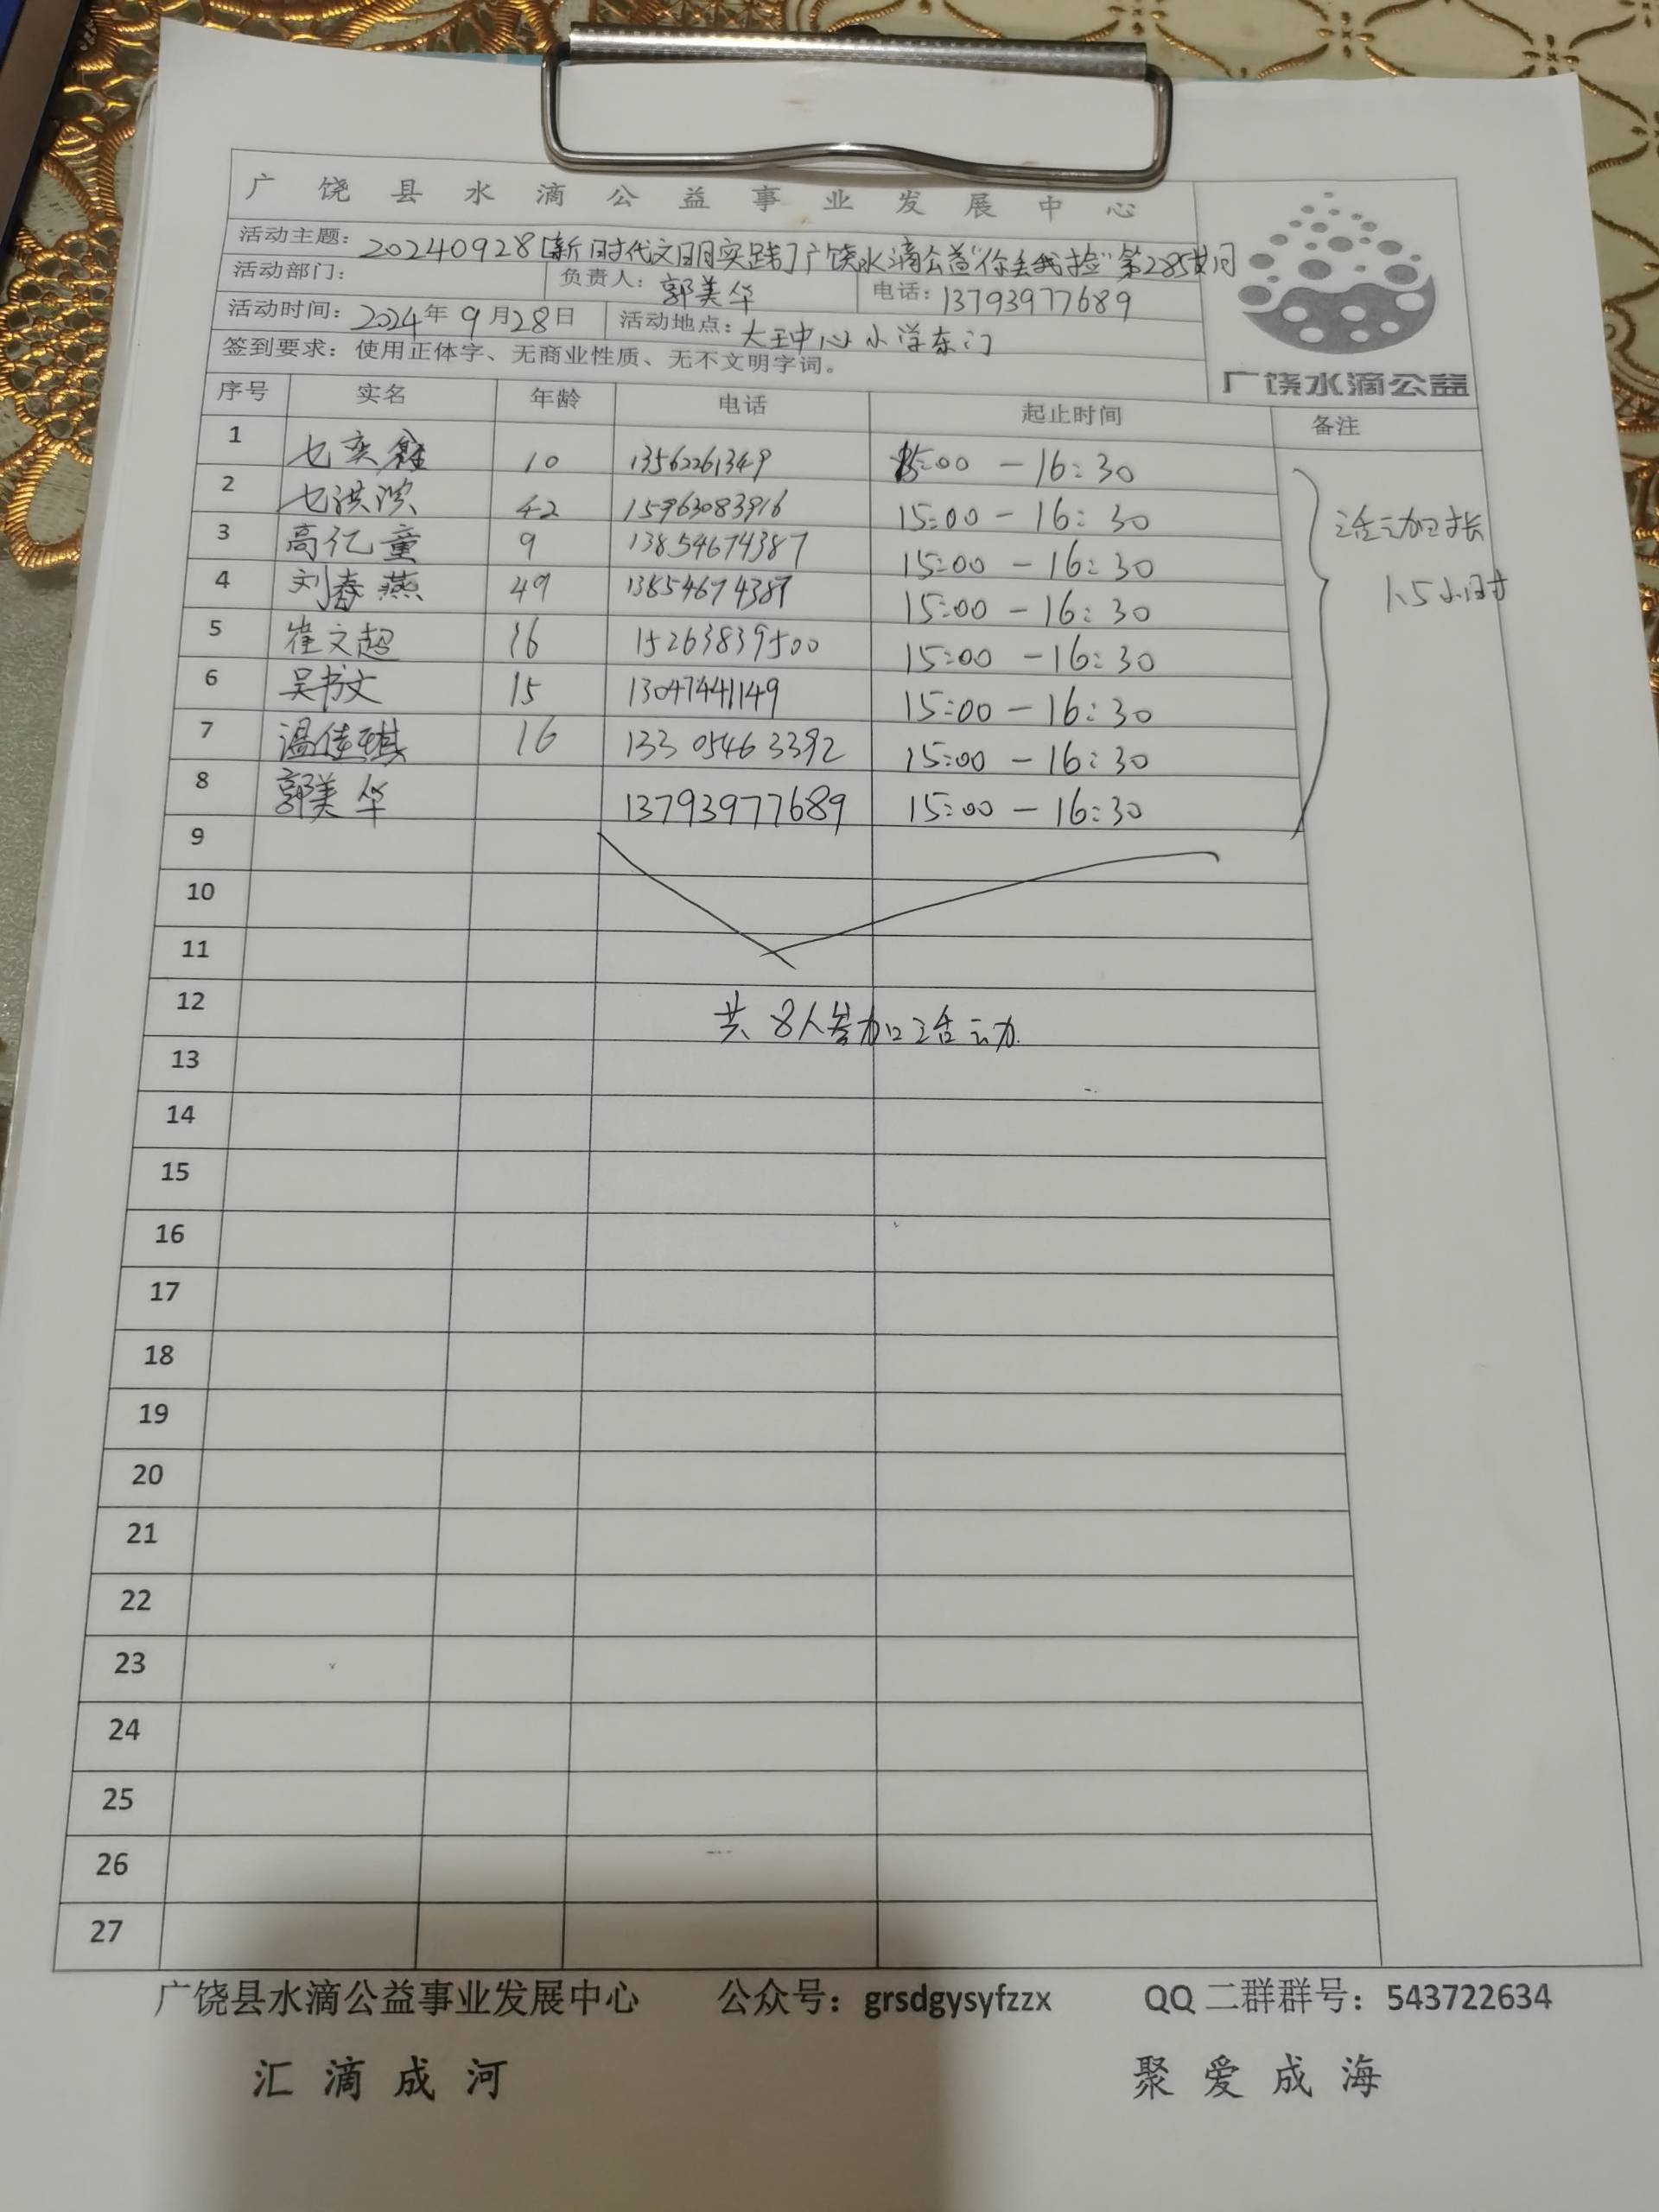 广饶县水滴公益事业发展中心
活动主题：20240928[新时代文明实践]广饶水滴公益"你丢我捡"第285期
活动部门： 负责人：郭美华 电话：13793977689
活动时间：2024年9月28日 活动地点：大王中心小学东门
签到要求：使用正体字、无商业性质、无不文明字词。
广饶水滴公益
序号 实名 年龄 电话 起止时间 备注
1 七奕鑫 10 13562261349 15:00 - 16:30
2 七洪滨 42 15963083916 15:00 - 16:30
3 高亿童 9 13854674387 15:00 - 16:30
4 刘春燕 49 13854674387 15:00 - 16:30
5 崔文超 16 15263839500 15:00 - 16:30
6 吴书文 15 13047441149 15:00 - 16:30
7 温佳琪 16 133 0546 3392 15:00 - 16:30
8 郭美华 13793977689 15:00 - 16:30
活动加长
1.5小时
9
10
11
12 共8人参加活动.
13
14
15
16
17
18
19
20
21
22
23
24
25
26
27
广饶县水滴公益事业发展中心 公众号：grsdgysyfzzx QQ二群群号：543722634
汇滴成河 聚爱成海